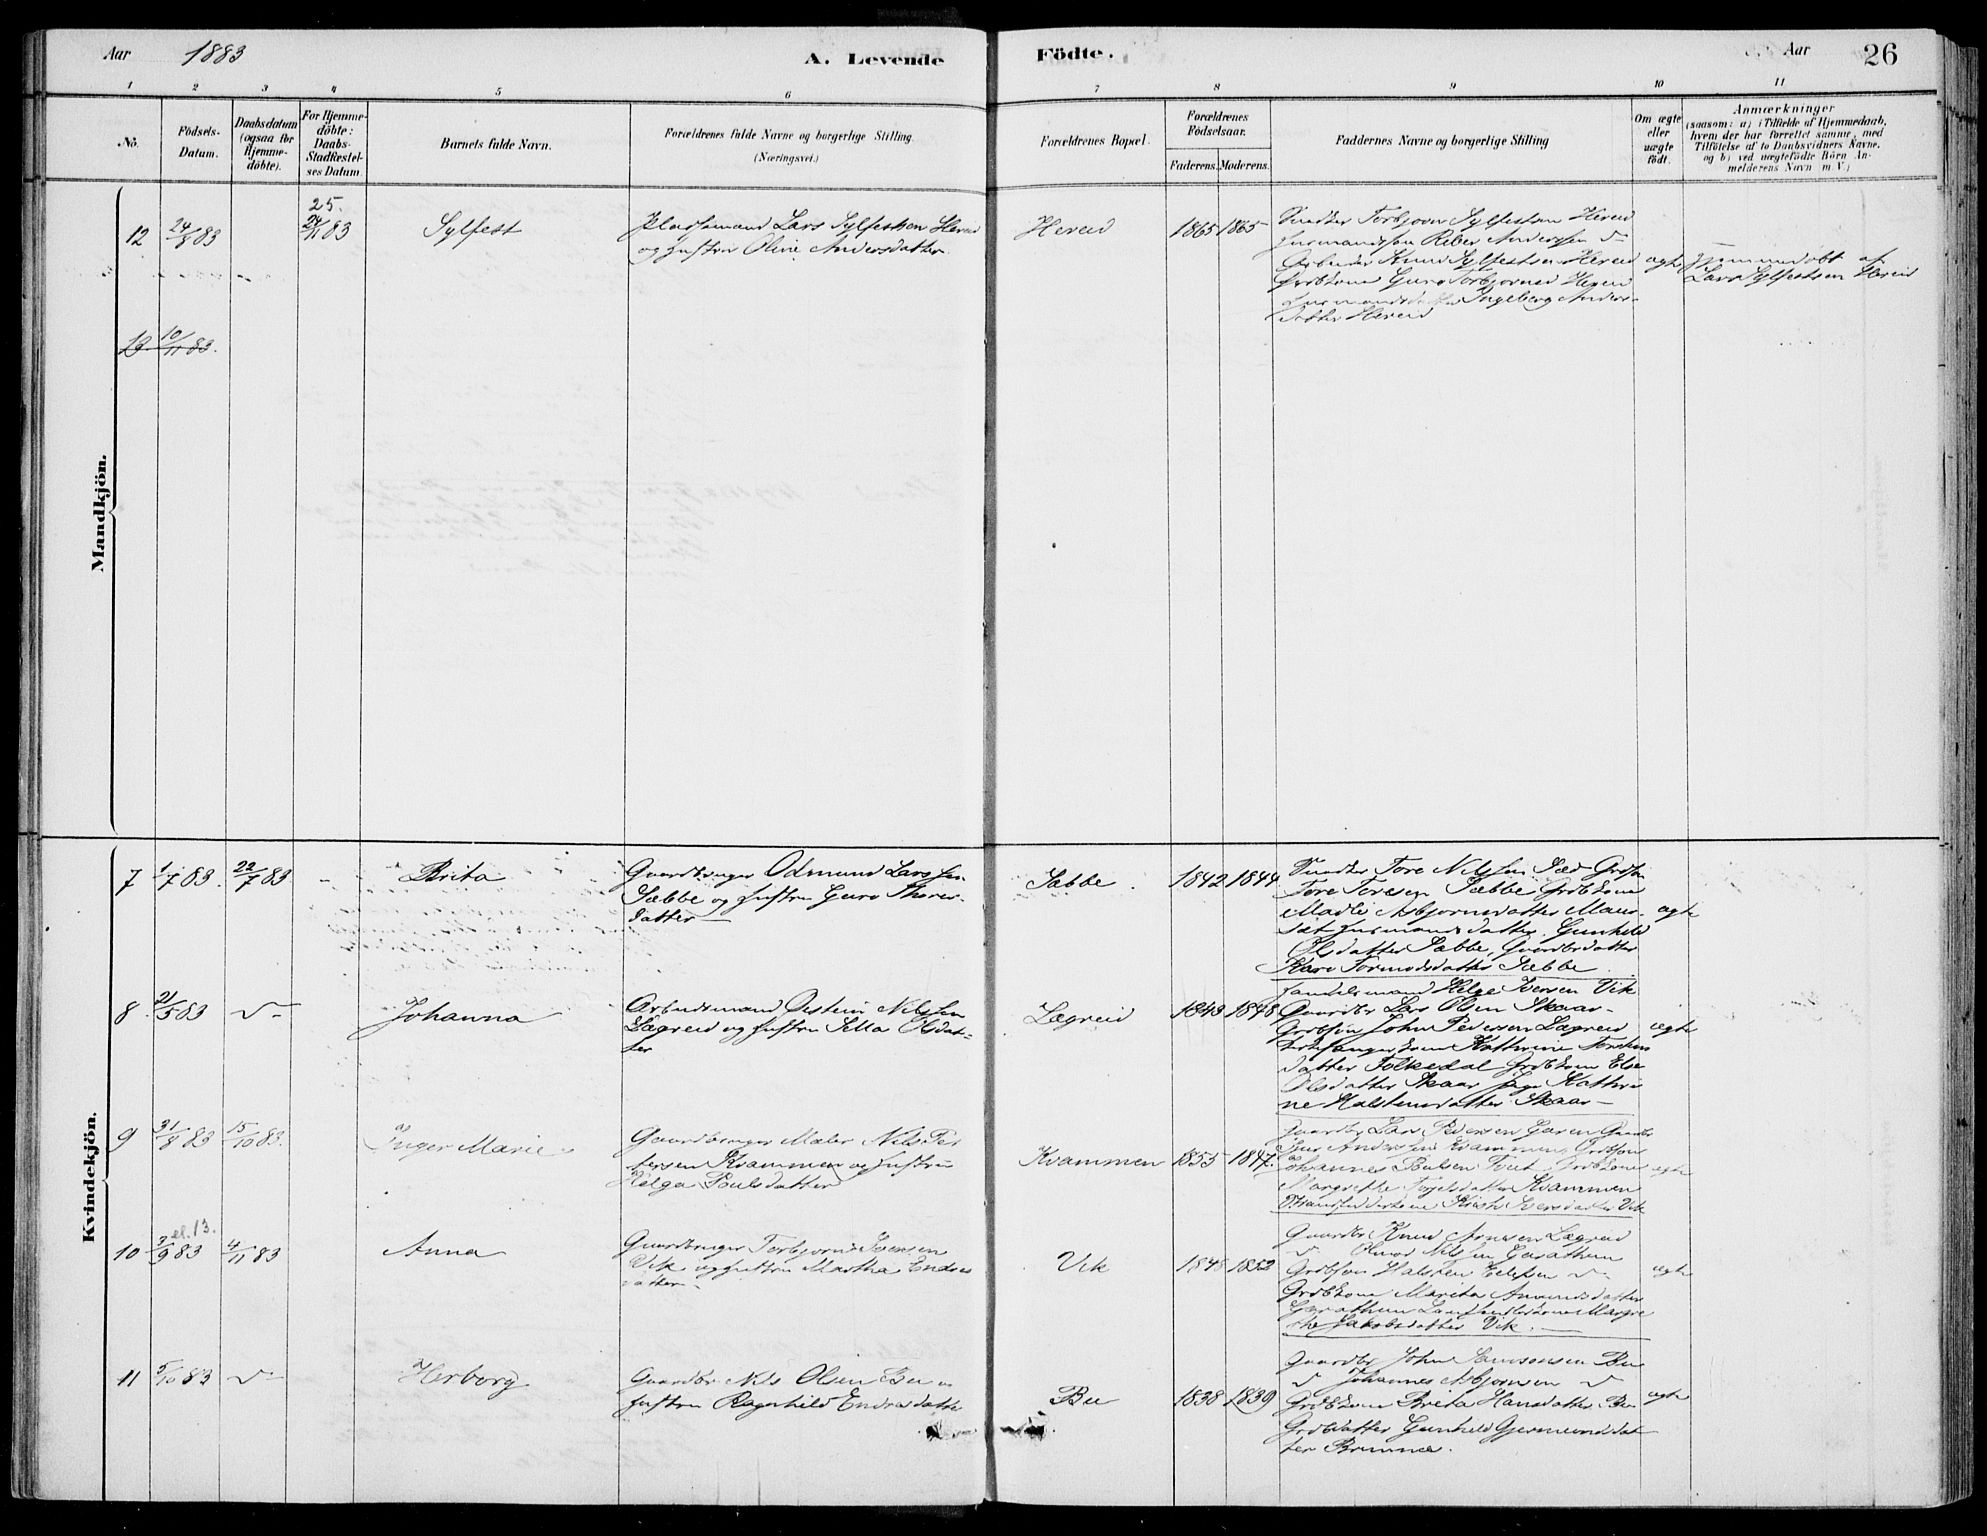 Aar 1883 A. Levende Födte. Aar 26
1 2 3 4 5 6 7 8 9 10 11
No.
Födsels-Datum.
Daabsdatum (ogsaa for Hjemme-döbte).
For Hjemme-döbte: Daabs-Stadfæstel-ses Datum.
Barnets fulde Navn.
Forældrenes fulde Navne og borgerlige Stilling.
(Næringsvei.)
Forældrenes Bopæl.
Forældrenes Födselsaar.
Faderens. Moderens.
Faddernes Navne og borgerlige Stilling
Om ægte eller uægte födt.
Anmærkninger
(saasom: a) i Tilfælde af Hjemmedaab,
hvem der har forrettet samme, med
Tilföielse af to Daabsvidners Navne.
og b) ved uægtefödte Börn An-
melderens Navn m. V.)
Mandkjön.
12 24/8 83 25. 24/11 83 Sylfest
Pladsmand Lars Sylfestsen Hereid
og Hustru Oline Andersdatter
Hereid 1865 1865
Torbjørn Sylfestsen Hereid
Andersen
Arbeider Knud Sylfestsen Hereid
Grdbkone Guro Torbjørnsd Hereid
Ingeborg Anders-
datter Hereid
ægte
Hjemmedøbt af
Lars Sylfestsen Hereid
13 10/11 83.
Kvindekjön.
7 1/7 83. 22/7 83 - Brita
Gaardbruger Odmund Larssen
Sæbbe og Hustru Guro Thores-
datter
Sæbbe. 1842 1844
Tore Nilssen Sæd Grdsøn
Tore Toresen Sæbbe Grdbkone
Madli Asbjørnsdatter Maur-
sæt Gunhild
Olsdatter Sæbbe, Gaardbrdatter
Kari Tormodsdatter Sæbbe
ægte
8. 21/5 83 Johanna
Arbeidsmand Østein Nilssen
Lægreid og Hustru Silla Olsdat-
ter
Lægreid 1843 1848
Handelsmand Helge Iversen Vik
Gaardbr Lars Olsen Skaar-
Grdbsøn John Pedersen Lægreid
Kirkesangerkone Kathrine Torstens
datter Folkedal Grdbkone Else
Olsdatter Skaar Pige Kathri
ne Halstensdatter Skaar-
ægte
9 31/8 83 15/10 83. Inger Marie
Gaardbruger Maler Nils Pe-
tersen Kvammen og Hustru
Helga Poulsdatter
Kvammen 1855 1847.
Gaardbr Lars Pedersen Garen Gaardbr
Andersen Kvammen, Grdbsøn
Johannes Poulsen Tveit, Grdbkone
Margrethe Torgilsdatter Kvammen
Iversdatter Vik
ægte
10 3/9 83 el. 13. 4/11 83 Anna
Gaardbruger Torbjørn Iversen
Vik og Hustru Martha Endres
datter
Vik 1848 1852
Gaardbr Knud Arnesen Lægreid
Olmod Nilssen Garathun
Grdbsøn Halsten
Grdbkone Marita Amundsdatter
Garathun Landhandlerkone Margre
the Jakobsdatter Vik.
ægte
11 5/10 83 Herborg
Gaardbr Nils Olsen Bu
Hustru Ragnhild Endresdatte
Bu 1838 1839
Gaardbr John Samsonsen Bu
Johannes Asbjørnsen
Grdbkone Brita Hansdatter Bu
Grdbdatter Gunhild Gjermundsdat
ter Brimnæs.
ægte